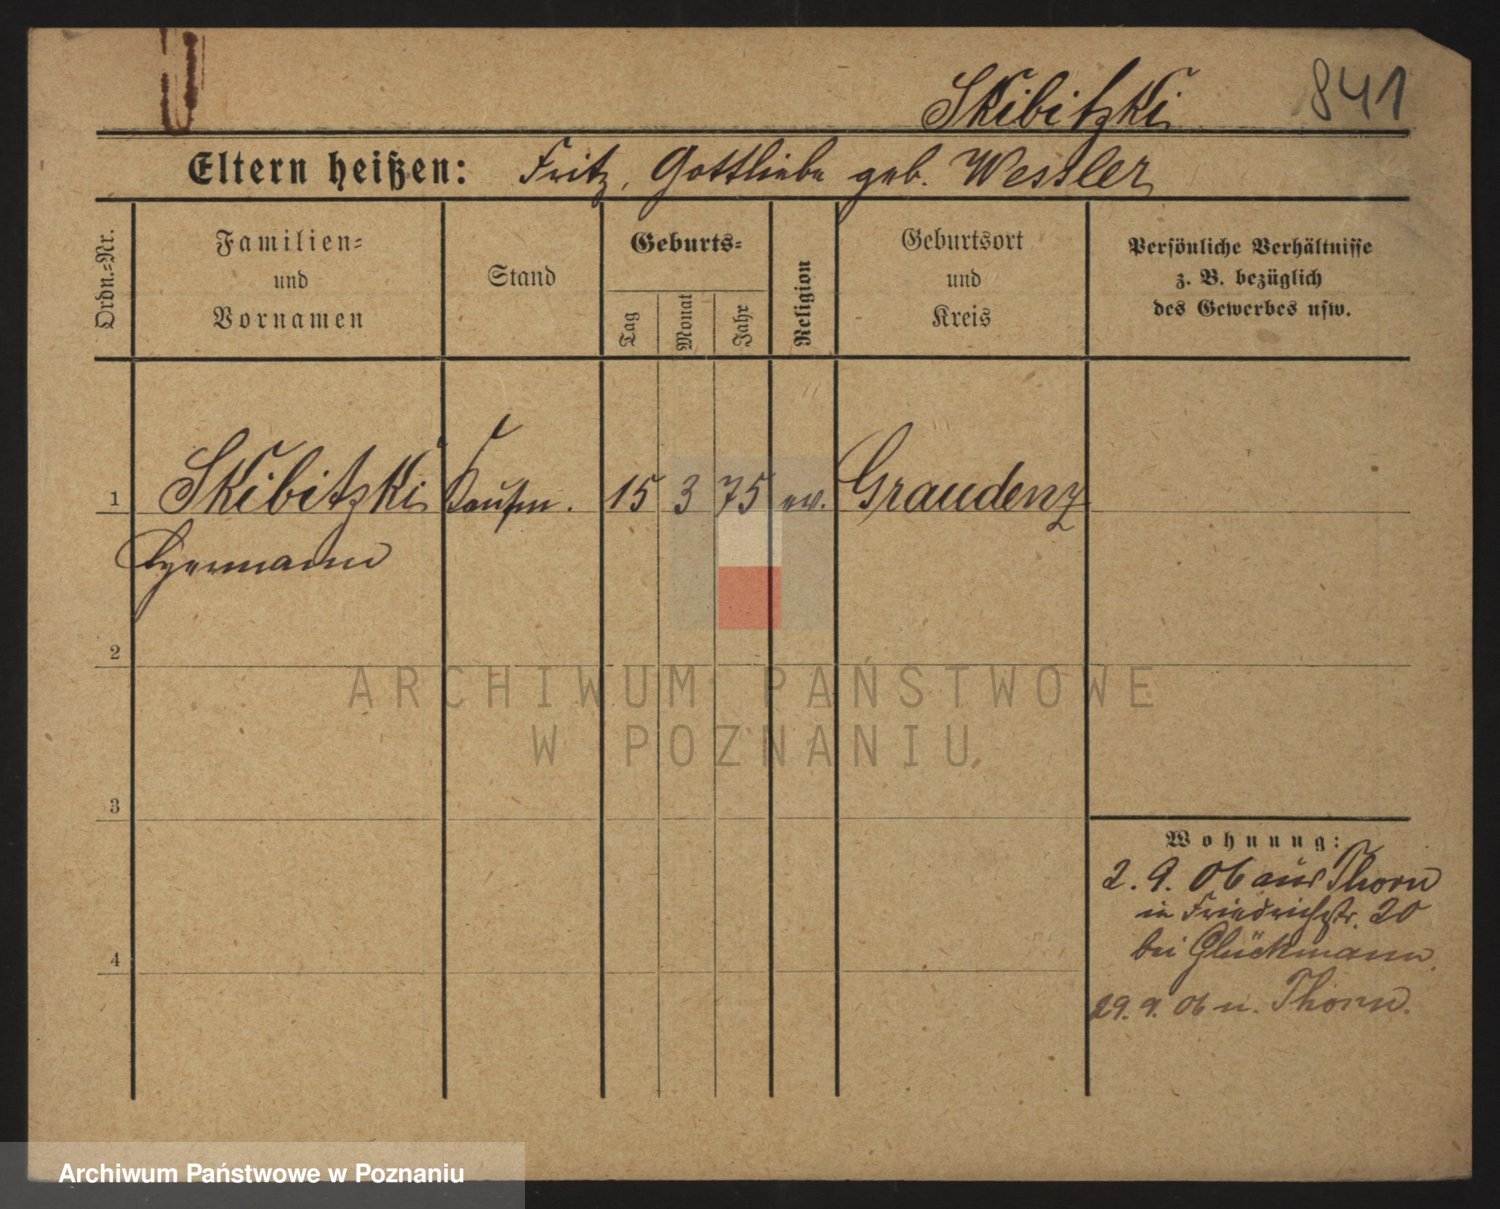 Skibitzki 841
Eltern heißen: Fritz, Gottliebe geb. Wessler
Ordn.=Nr.
Familien=
und
Vornamen
Stand
Geburts=
Tag
Monat
Jahr
Religion
Geburtsort
und
Kreis
Persönliche Verhältnisse
z. B. bezüglich
des Gewerbes usw.
1 Skibitzki Kaufm. 15 3 75 ev. Graudenz
Hermann
2
ARCHIWUM PAŃSTWOWE
W POZNANIU
3
Wohnung:
2. 9. 06 aus Thorn
in Friedrichstr. 20
bei Glückmann
4
29. 9. 06 n. Thorn.
Archiwum Państwowe w Poznaniu